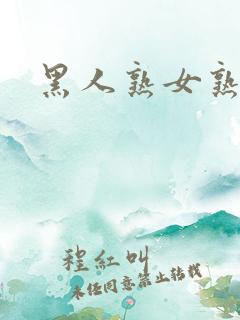 黑人熟女熟
程紅叫
未经同意禁止转载